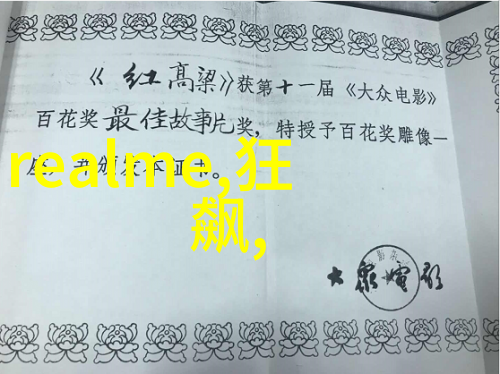 《红高粱》获第十一届《大众电影》
百花奖最佳故事片奖，特授予百花奖雕像一
座，并颁发本证书。
realme,狂
飙,
大众电影